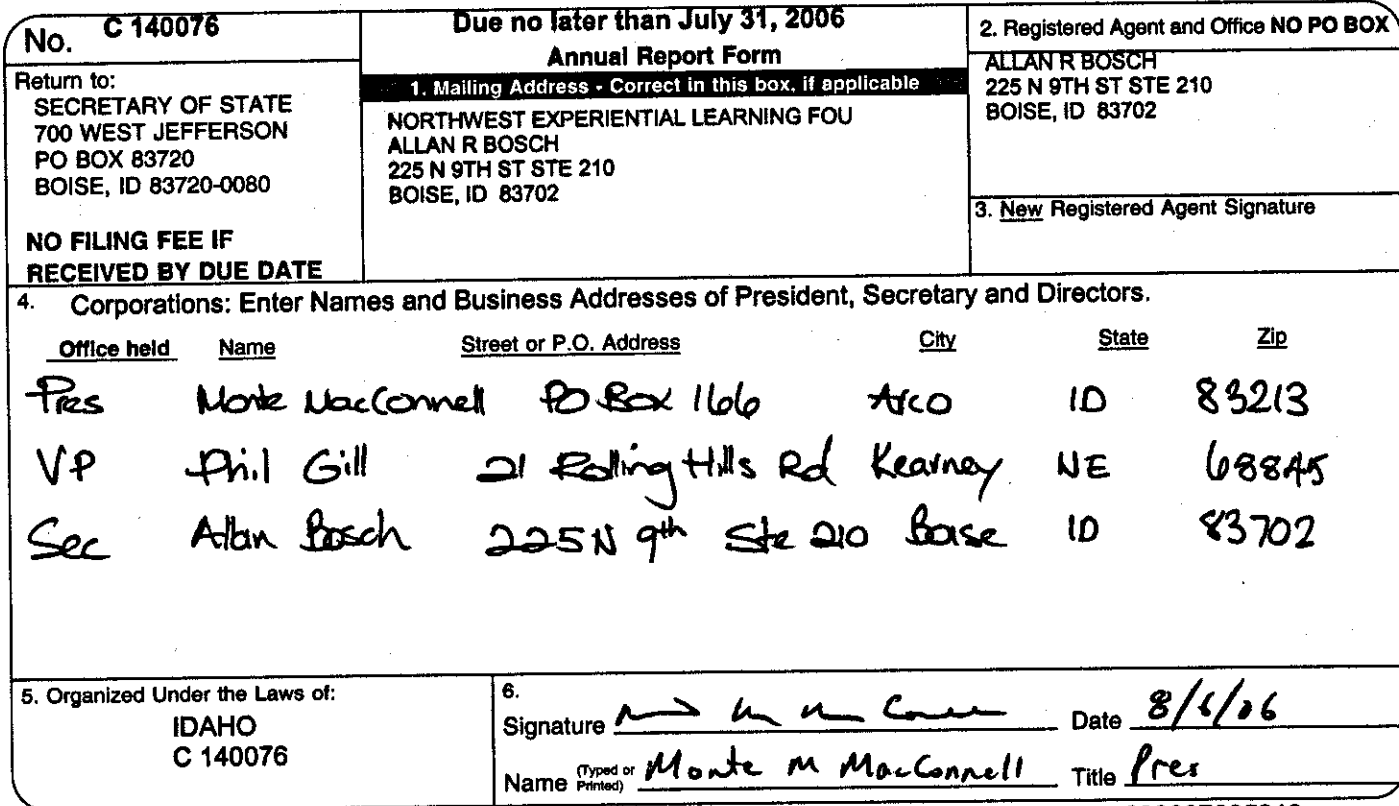 No. C 140076
Return to:
SECRETARY OF STATE
700 WEST JEFFERSON
PO BOX 83720
BOISE, ID 83720-0080
NO FILING FEE IF
RECEIVED BY DUE DATE
Due no later than July 31, 2006
Annual Report Form
1. Mailing Address - Correct in this box, if applicable
NORTHWEST EXPERIENTIAL LEARNING FOU
ALLAN R BOSCH
225 N 9TH ST STE 210
BOISE, ID 83702
2. Registered Agent and Office NO PO BOX
ALLAN R BOSCH
225 N 9TH ST STE 210
BOISE, ID 83702
3. New Registered Agent Signature
4. Corporations: Enter Names and Business Addresses of President, Secretary and Directors.
Office held Name Street or P.O. Address City State Zip
Pres Monte MacConnell PO Box 166 Arco ID 83213
VP Phil Gill 21 Rolling Hills Rd Kearney NE 68845
Sec Allan Bosch 225 N 9th Ste 210 Boise ID 83702
5. Organized Under the Laws of:
IDAHO
C 140076
6.
Signature Date 8/6/06
Name (Typed or Printed) Monte M MacConnell Title Pres